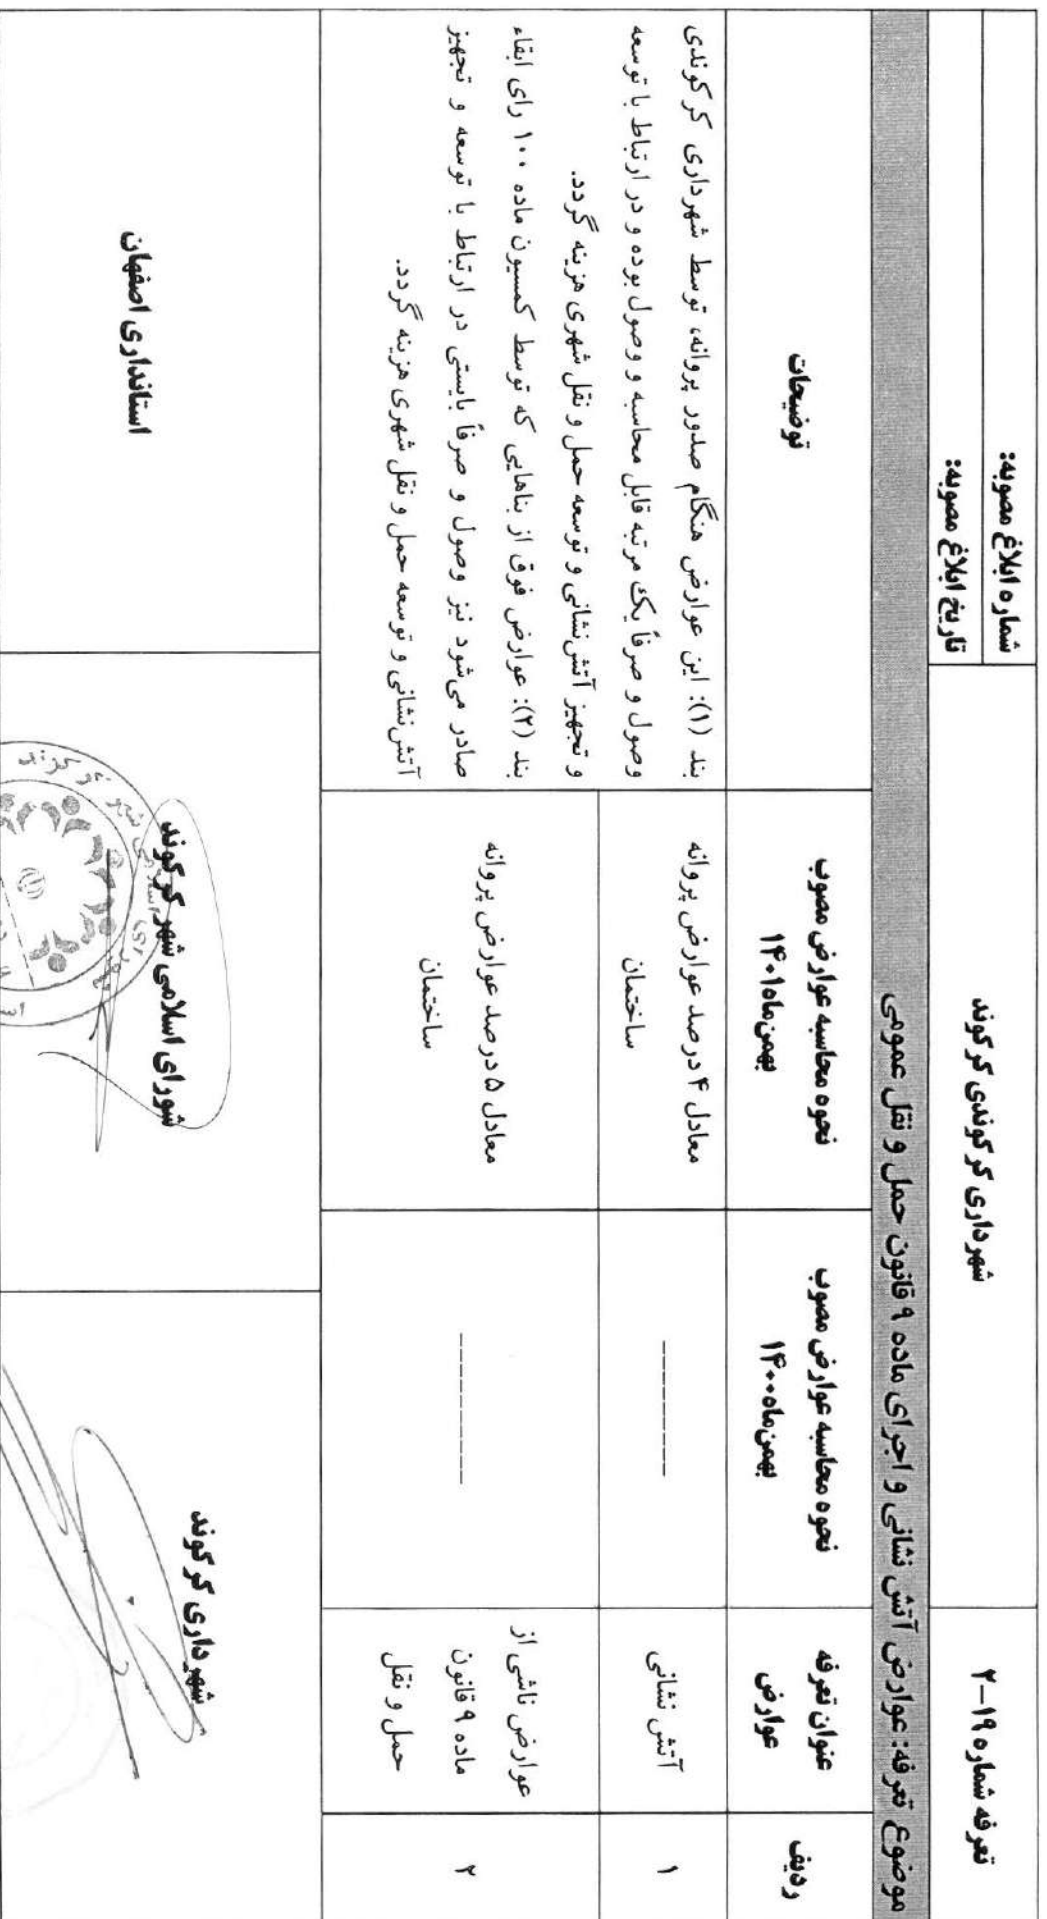 تعرفه شماره ۱۹-۲
شهرداری کرکوندی کرکوند
شماره ابلاغ مصوبه:
تاریخ ابلاغ مصوبه:
موضوع تعرفه: عوارض آتش نشانی و اجرای ماده ۹ قانون حمل و نقل عمومی
ردیف
عنوان تعرفه
عوارض
نحوه محاسبه عوارض مصوب
بهمن‌ماه۱۴۰۰
نحوه محاسبه عوارض مصوب
بهمن‌ماه۱۴۰۱
توضیحات
۱
آتش نشانی
-----------
معادل ۴ درصد عوارض پروانه
ساختمان
۲
عوارض ناشی از
ماده ۹ قانون
حمل و نقل
------------
معادل ۵ درصد عوارض پروانه
ساختمان
بند (۱): این عوارض هنگام صدور پروانه، توسط شهرداری کرکوندی
وصول و صرفاً یک مرتبه قابل محاسبه و وصول بوده و در ارتباط با توسعه
و تجهیز آتش‌نشانی و توسعه حمل و نقل شهری هزینه گردد.
بند (۲): عوارض فوق از بناهایی که توسط کمسیون ماده ۱۰۰ رای ابقاء
صادر می‌شود نیز وصول و صرفاً بایستی در ارتباط با توسعه و تجهیز
آتش‌نشانی و توسعه حمل و نقل شهری هزینه گردد.
شهرداری کرکوند
شورای اسلامی شهر کرکوند
استانداری اصفهان